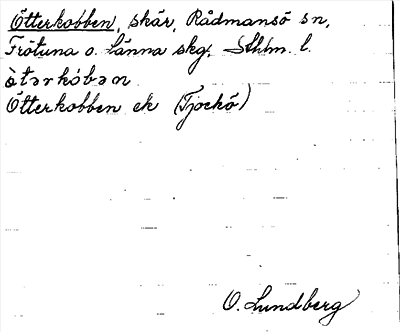 Ötterkobben, skär, Rådmansö sn,
Frötuna o. Länna skg, Sthlm. l.
ò̀tərkòbən
Ötterkobben ek (Tjockö)
O. Lundberg